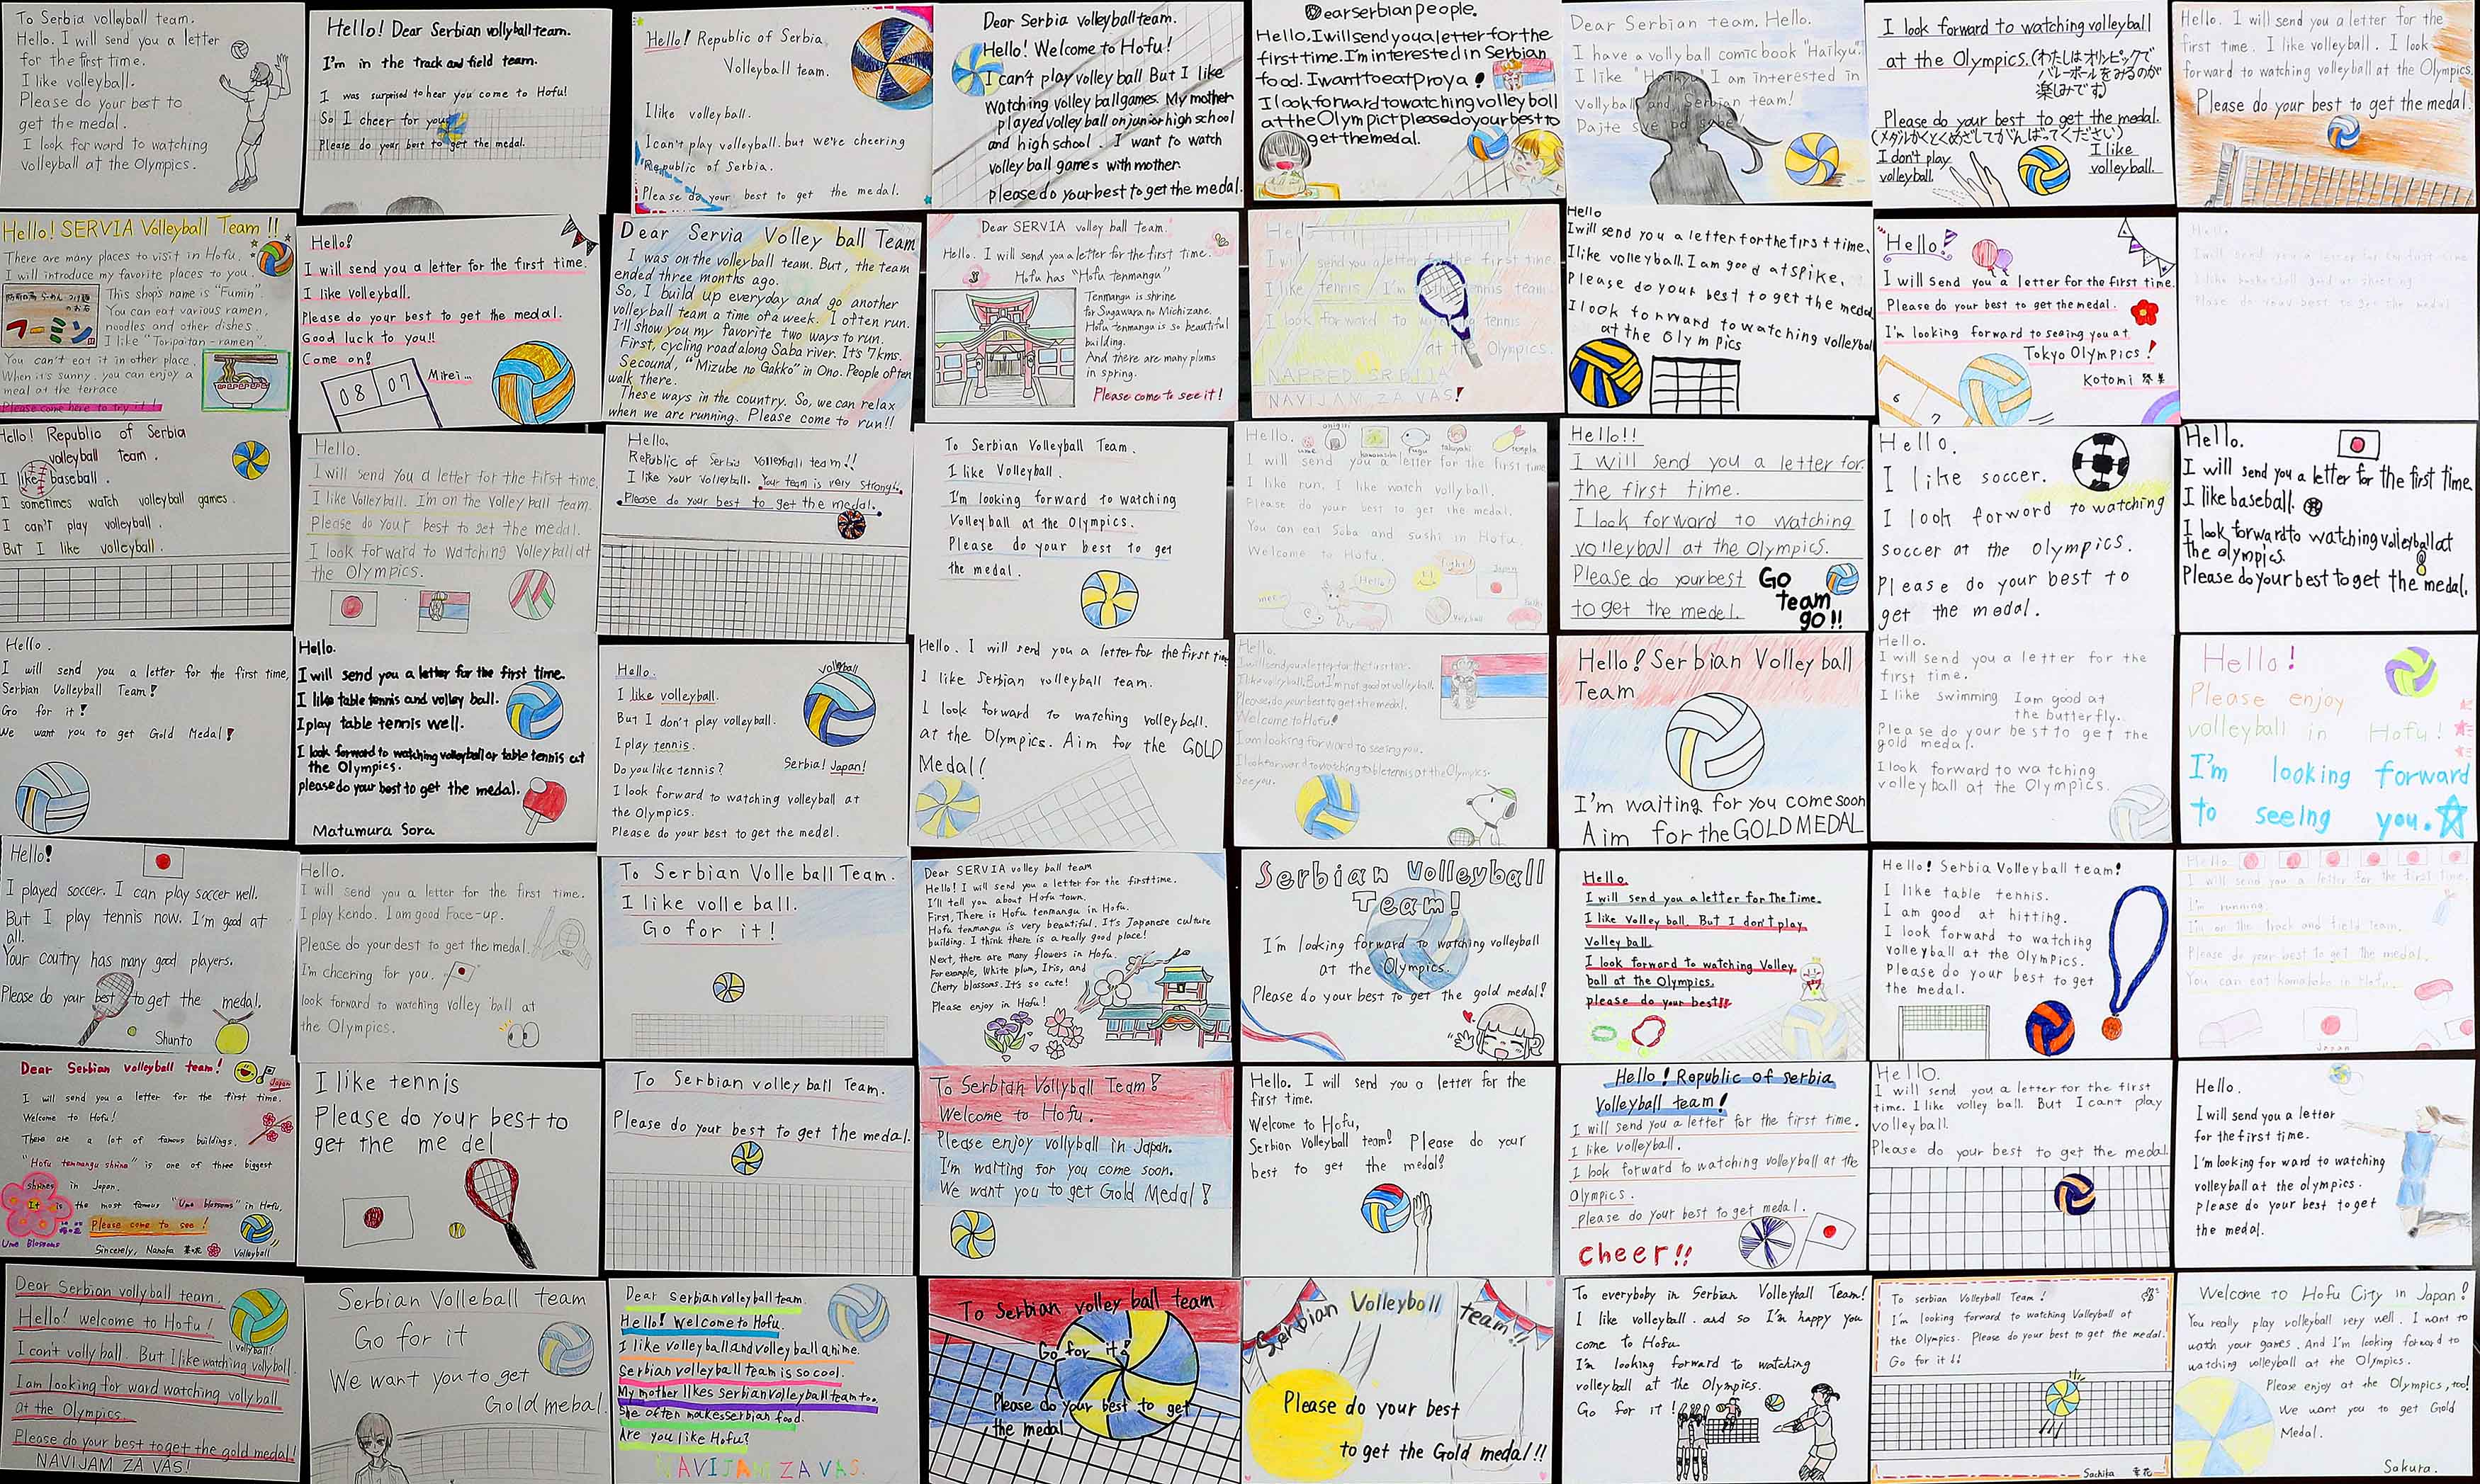 To Serbia volleyball team.
Hello. I will send you a letter
for the first time.
I like volleyball.
Please do your best to
get the medal.
I look forward to watching
volleyball at the Olympics.
Hello! Dear Serbian vollyball team.
I'm in the track and field team.
I was surprised to hear you come to Hofu!
So I cheer for you!
Please do your best to get the medal.
Hello! Republic of Serbia
Volleyball team.
I like volleyball.
I can't play volleyball. but we're cheering
Republic of Serbia.
Please do your best to get the medal.
Dear Serbia volleyball team.
Hello! Welcome to Hofu!
I can't play volleyball But I like
watching volleyball games. My mother
played volleyball on junior high school
and high school. I want to watch
volleyball games with mother.
please do your best to get the medal.
Dear serbian people.
Hello. I will send you a letter for the
first time. I'm interested in Serbian
food. I want to eat Proya!
I look forward to watching volley boll
at the Olympict please do your best to
get the medal.
Dear Serbian team. Hello.
I have a vollyball comic book "Haikyu".
I like "Haikyu". I am interested in
Vollyball and Serbian team!
Pajte sve od sebe!
I look forward to watching volleyball
at the Olympics. (わたしはオリンピックで
バレーボールをみるのが
楽しみです)
Please do your best to get the medal.
(メダルかくとくめざしてがんばってください)
I don't play
volleyball.
I like
volleyball.
Hello. I will send you a letter for the
first time. I like volleyball. I look
forward to watching volleyball at the Olympics.
Please do your best to get the medal.
Hello! SERVIA Volleyball Team!!
There are many places to visit in Hofu.
I will introduce my favorite places to you.
This shop's name is "Fumin".
You can eat various ramen,
noodles and other dishes.
I like "Toripaitan-ramen".
フーミン
You can't eat it in other place.
When it's sunny, you can enjoy a
meal at the terrace
Please come here to try it!
Hello!
I will send you a letter for the first time.
I like volleyball.
Please do your best to get the medal.
Good luck to you!!
Come on!
08 07
Mirei...
Dear Servia Volley ball Team
I was on the volleyball team. But, the team
ended three months ago.
So, I build up everyday and go another
volleyball team a time of a week. I often run.
I'll show you my favorite two ways to run.
First, cycling road along Saba river. It's 7kms.
Secound, "Mizube no Gakko" in Ono. People often
walk there.
These ways in the country. So, we can relax
when we are running. Please come to run!!
Dear SERVIA volley ball team.
Hello. I will send you a letter for the first time.
Hofu has "Hofu tenmangu"
Tenmangu is shrine
for Sugawara no Michizane.
Hofu tenmangu is so beautiful
building.
And there are many plums
in spring.
Please come to see it!
Hello
I will send you a letter for the first time
I like tennis I'm on the tennis team.
I look forward to watching tennis
at the Olympics.
NAPRED SRBIJA
NAVIJAM ZA VAS!
Hello
I will send you a letter for the first time.
I like volleyball. I am good at spike.
Please do your best to get the medal
I look forward to watching volleyball
at the Olympics
Hello!
I will send you a letter for the first time.
Please do your best to get the medal.
I'm looking forward to seeing you at
Tokyo Olympics!
Kotomi 琴美
6 7
Hello! Republic of Serbia
volleyball team.
I like baseball.
I sometimes watch volleyball games.
I can't play volleyball.
But I like volleyball.
Hello.
I will send you a letter for the first time.
I like Volleyball. I'm on the Volleyball team.
Please do your best to get the medal.
I look forward to watching Volleyball at
the Olympics.
Hello.
Republic of Serbia volleyball team!!
I like your volleyball. Your team is very strong.
Please do your best to get the medal.
To Serbian Volleyball Team.
I like Volleyball.
I'm looking forward to watching
Volleyball at the Olympics.
Please do your best to get
the medal.
Hello.
ume onigiri kamaboko fugu takoyaki templa
I will send you a letter for the first time
I like run. I like watch vollyball.
Please do your best to get the medal.
You can eat Soba and sushi in Hofu.
Welcome to Hofu.
Hello!
Japan
Hello!!
I will send you a letter for
the first time.
I look forward to watching
volleyball at the Olympics.
Please do your best
to get the medel.
Go
team
go!!
Hello.
I like soccer.
I look forward to watching
soccer at the olympics.
Please do your best to
get the medal.
Hello.
I will send you a letter for the first time.
I like baseball.
I look forward to watching volleyball at
the olympics.
Please do your best to get the medal.
Hello.
I will send you a letter for the first time,
Serbian Volleyball Team!
Go for it!
We want you to get Gold Medal!
Hello.
I will send you a letter for the first time.
I like table tennis and volley ball.
I play table tennis well.
I look forward to watching volleyball or table tennis at
the Olympics.
please do your best to get the medal.
Matumura Sora
volleyball
Hello.
I like volleyball.
But I don't play volleyball.
I play tennis.
Do you like tennis?
Serbia! Japan!
I look forward to watching volleyball at
the Olympics.
Please do your best to get the medel.
Hello. I will send you a letter for the first time
I like Serbian volleyball team.
I look forward to watching volleyball.
at the Olympics. Aim for the GOLD
Medal!
Hello.
I will send you a letter for the first time.
I like volleyball. But I'm not good at volleyball.
Please do your best to get the medal.
Welcome to Hofu!
I am looking forward to seeing you.
I look forward to watching table tennis at the Olympics.
See you.
Hello! Serbian Volley ball
Team
I'm waiting for you come soon
Aim for the GOLD MEDAL
Hello.
I will send you a letter for the
first time.
I like swimming I am good at
the butterfly.
Please do your best to get the
gold medal.
I look forward to watching
volleyball at the Olympics.
Hello!
Please enjoy
volleyball in Hofu!
I'm looking forward
to seeing you.
Hello!
I played soccer. I can play soccer well.
But I play tennis now. I'm good at
all.
Your coutry has many good players.
Please do your best to get the medal.
Shunto
Hello.
I will send you a letter for the first time.
I play kendo. I am good Face-up.
Please do your dest to get the medal.
I'm cheering for you.
look forward to watching volley ball at
the Olympics.
To Serbian Volle ball Team.
I like volle ball.
Go for it!
Dear SERVIA volley ball team
Hello! I will send you a letter for the first time.
I'll tell you about Hofu town.
First, There is Hofu tenmangu in Hofu.
Hofu tenmangu is very beautiful. It's Japanese culture
building. I think there is a really good place!
Next, there are many flowers in Hofu.
For example, White plum, Iris, and
Cherry blossoms. It's so cute!
Please enjoy in Hofu!
Serbian Volleyball
Team!
I'm looking forward to watching volleyball
at the Olympics.
Please do your best to get the gold medal!
Hello.
I will send you a letter for the Time.
I like Volley ball. But I don't play
Volley ball.
I look forward to watching Volley
ball at the Olympics.
please do your best!!
Hello! Serbia Volleyball team!
I like table tennis.
I am good at hitting.
I look forward to watching
volleyball at the Olympics.
Please do your best to get
the medal.
Hello.
I will send you a letter for the first time.
I'm running.
I'm on the track and field team.
Please do your best to get the medal.
You can eat kamaboko in Hofu.
Japan
Dear Serbian volleyball team!
Japan
I will send you a letter for the first time.
Welcome to Hofu!
There are a lot of famous buildings.
"Hofu tenmangu shrine" is one of three biggest
shrines in Japan.
It is the most famous "Ume blossoms" in Hofu.
Please come to see!
Ume Blossoms
Sincerely, Nanoka 菜の花
Volleyball
I like tennis
Please do your best to
get the me del
To Serbian volley ball Team.
Please do your best to get the medal.
To Serbian Vollyball Team!
Welcome to Hofu.
Please enjoy vollyball in Japan.
I'm waiting for you come soon.
We want you to get Gold Medal!
Hello. I will send you a letter for the
first time.
Welcome to Hofu,
Serbian Volleyball team! Please do your
best to get the medal!
Hello! Republic of serbia
Volleyball team!
I will send you a letter for the first time.
I like Volleyball.
I look forward to watching volleyball at the
Olympics.
Please do your best to get medal.
cheer!!
Hello.
I will send you a letter for the first
time. I like volley ball. But I can't play
volleyball.
Please do your best to get the medal.
Hello.
I will send you a letter
for the first time.
I'm looking for ward to watching
volleyball at the olympics.
please do your best to get
the medal.
Dear Serbian vollyball team.
Hello! Welcome to Hofu!
(volleyball!)
I can't volly ball. But I like watching vollyball.
I am looking for ward watching vollyball
at the Olympics.
Please do your best to get the gold medal!
NAVIJAM ZA VAS!
Serbian Volleball team
Go for it
We want you to get
Gold mebal.
Dear Serbian volleyball team.
Hello! Welcome to Hofu.
I like volleyball and volleyball anime.
Serbian volleyball team is so cool.
My mother likes serbian volleyball team too.
She often makes serbian food.
Are you like Hofu?
NAVIJAM ZA VAS.
To Serbian volley ball team
Go for it!
Please do your best to get
the medal
Serbian Volleyboll team!!
Please do your best
to get the Gold medal!!
To everyboby in Serbian Volleyball Team!
I like volleyball. and so I'm happy you
come to Hofu.
I'm looking forward to watching
volleyball at the Olympics.
Go for it!
To serbian Volleyball Team!
I'm looking forward to watching Volleyball at
the Olympics. Please do your best to get the medal.
Go for it!!
Sachika 幸花
Welcome to Hofu City in Japan!
You really play volleyball very well. I want to
wath your games. And I'm looking forward to
watching volleyball at the Olympics.
Please enjoy at the Olympics, too!
We want you to get Gold
Medal.
Sakura.